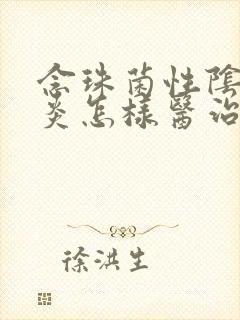 念珠菌性陰
炎怎樣醫治
徐洪生